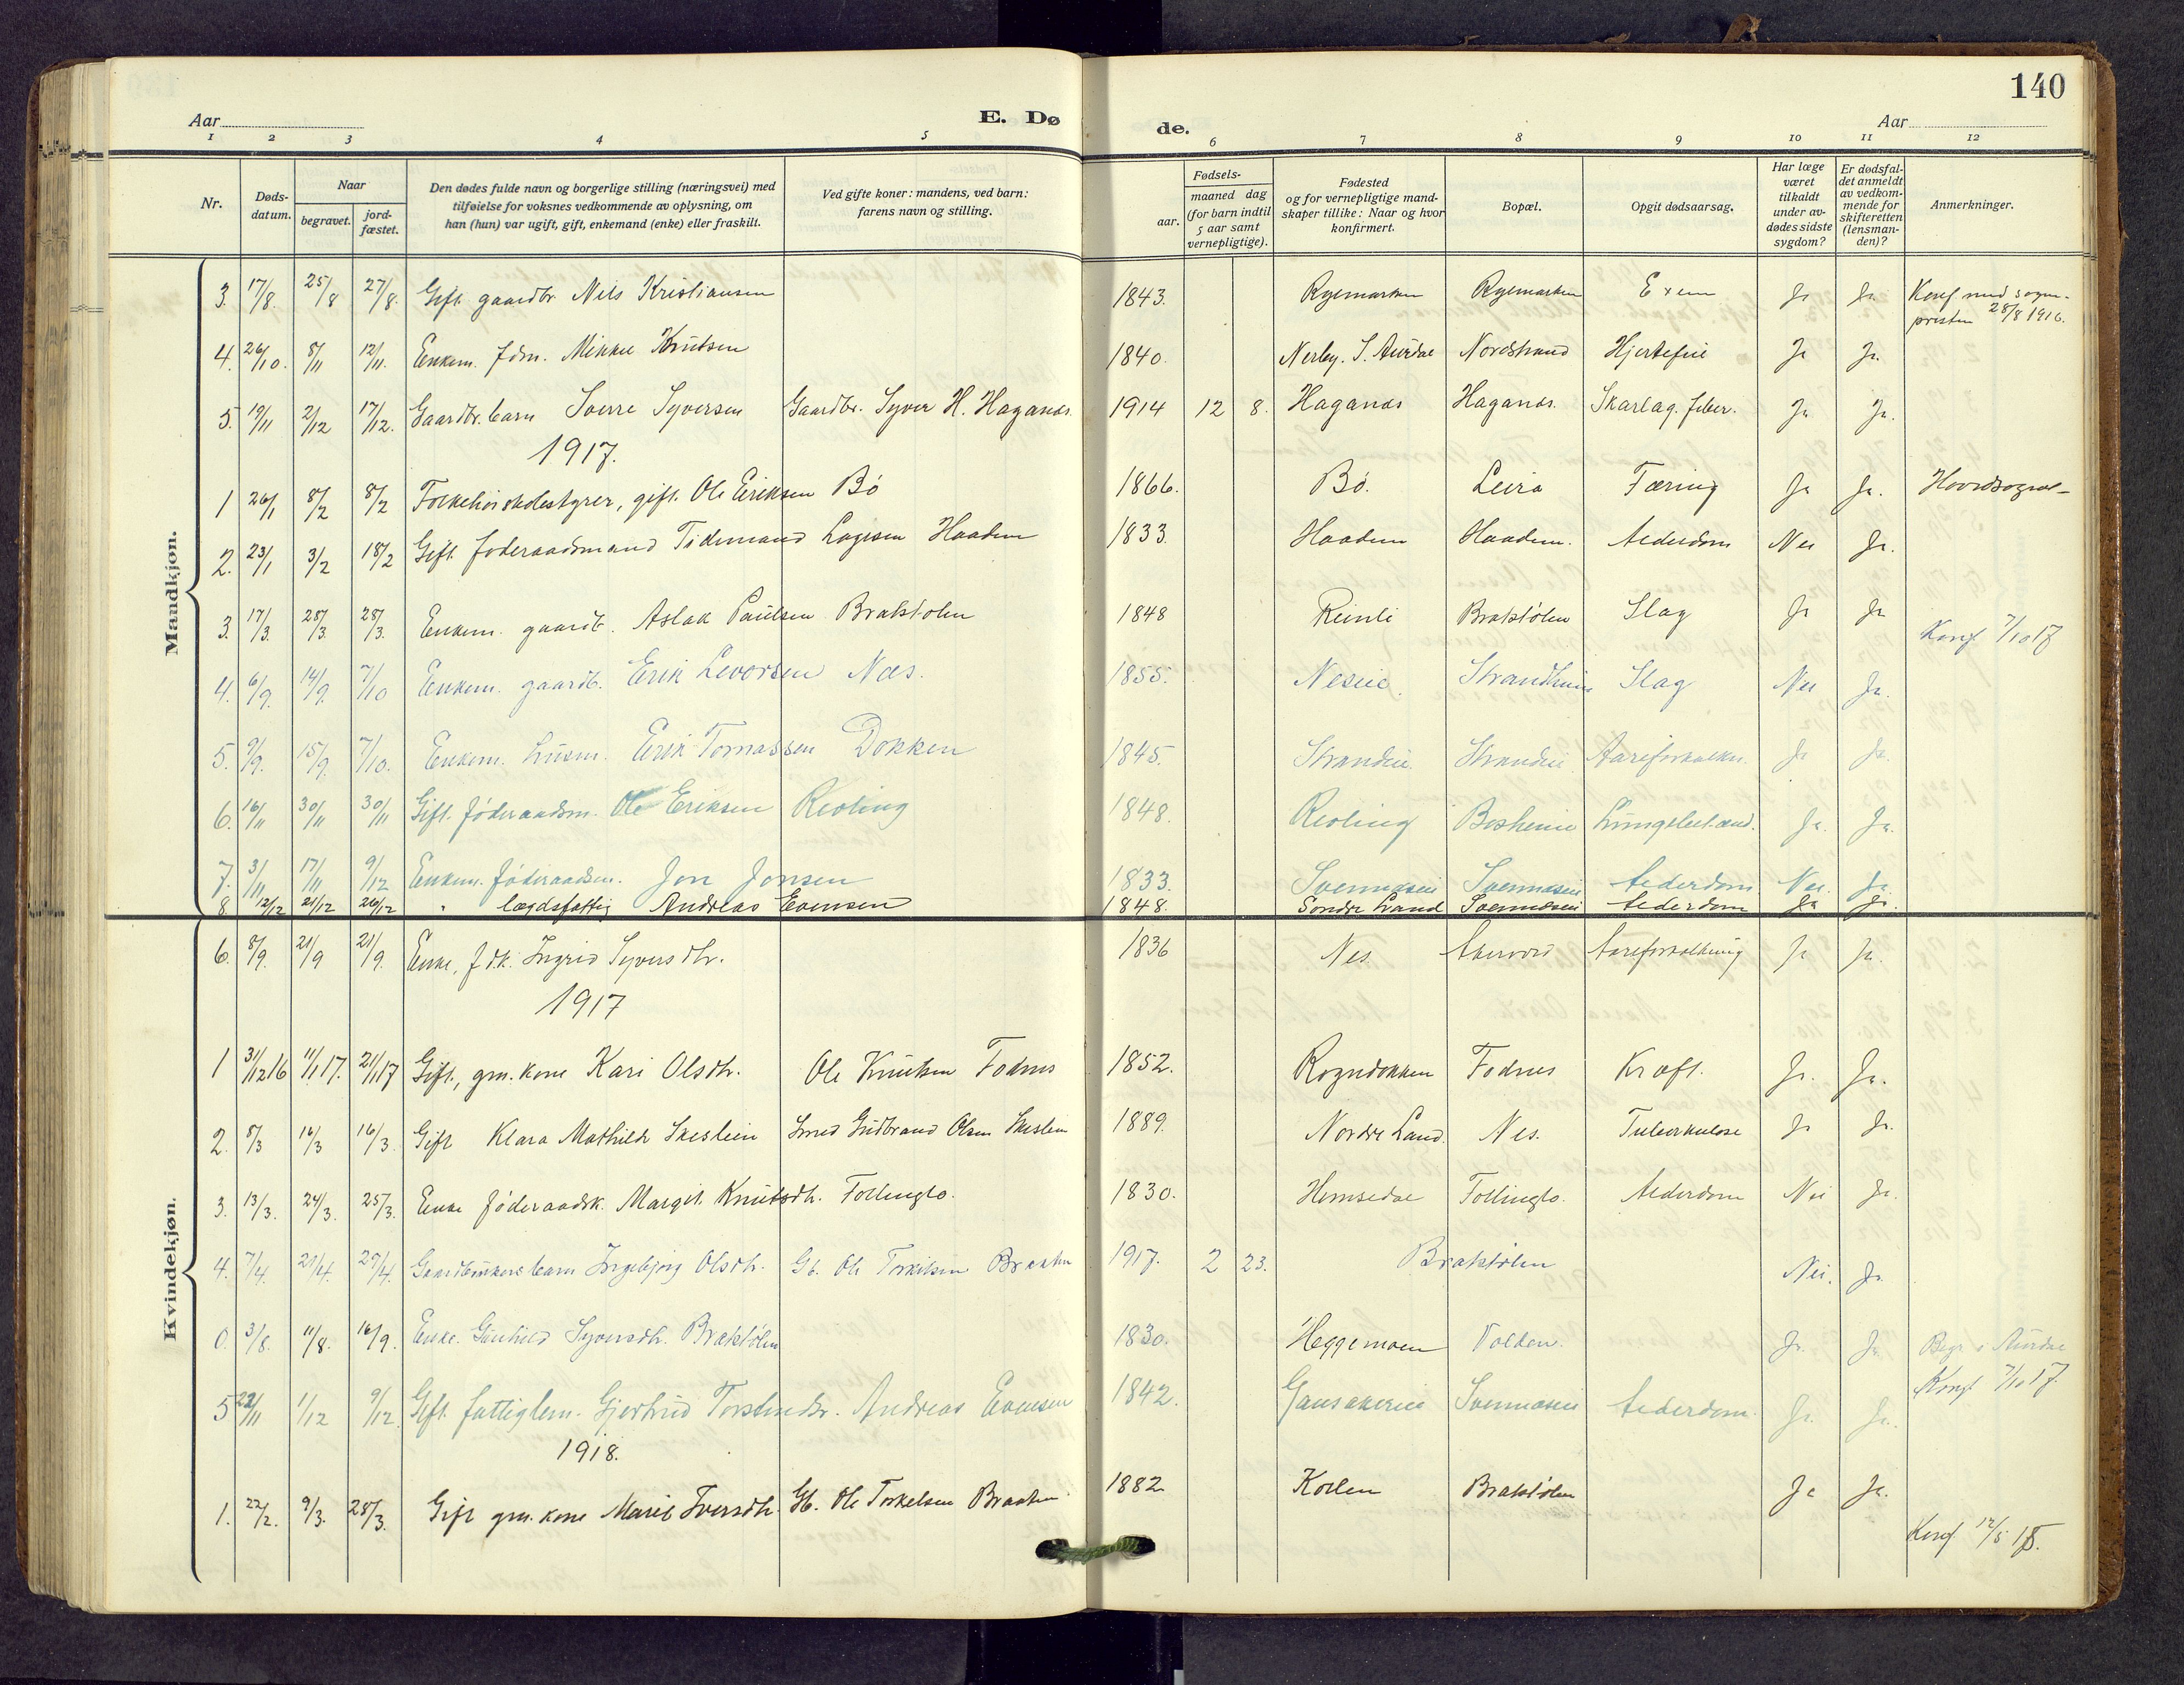 140
Aar
E. Dø
de.
Aar
1 2 3 4 5 6 7 8 9 10 11 12
Nr.
Døds-datum.
Naar
begravet.
jord-fæstet.
Den dødes fulde navn og borgerlige stilling (næringsvei) med
tilføielse for voksnes vedkommende av oplysning, om
han (hun) var ugift, gift, enkemand (enke) eller fraskilt.
Ved gifte koner: mandens, ved barn:
farens navn og stilling.
Fødsels-
aar.
maaned dag
(for barn indtil
5 aar samt
vernepligtige).
Fødested
og for vernepligtige mand-
skaper tillike: Naar og hvor
konfirmert.
Bopæl.
Opgit dødsaarsag.
Har læge
været
tilkaldt
under av-
dødes sidste
sygdom?
Er dødsfal-
det anmeldt
av vedkom-
mende for
skifteretten
(lensman-
den)?
Anmerkninger.
Mandkjøn.
3. 17/8. 25/8 27/8. Gift gaardbr Nils Kristiansen 1843. Ryemarken Ryemarken Exem Ja Ja Konf. med sogne-
presten 28/8 1916.
4. 26/10. 8/11 12/11. Enkem. fdm. Mikkel Knutsen 1840. Nerby. S. Aurdal Nordstrand Hjertefeil Ja Ja.
5. 19/11 2/12 17/12. Gaardbr. barn Sverre Syversen Gaardbr. Syver H. Haganæs. 1914 12 8. Haganæs Haganæs. Skarlag. feber. Ja Ja.
1917.
1 26/1 8/2 8/2 Folkehøiskolestyrer, gift. Ole Eriksen Bø 1866. Bø. Leira Tæring Ja Ja.
2. 23/1 3/2 18/2 Gift føderaadsmand Tidemand Lagesen Haadem 1833. Haadem Haadem. Alderdom Nei Ja.
3. 17/3. 28/3. 28/3. Enkem. gaardb. Aslak Paulsen Brakstølen 1848 Reinli Brakstølen Slag Ja Ja
Konf. 7/10 17
4. 6/9. 14/9. 7/10 Enkem. gaardb. Erik Levorsen Næs. 1855. Neseie. Strandheim Slag Nei Ja.
5. 9/9. 15/9. 7/10. Enkem. husm. Erik Tomassen Dokken 1845. Strandeie. Strandeie. Aareforkalkn. Ja Ja.
6. 16/11 30/11 30/11 Gift. føderaadsm. Ole Eriksen Kesling 1848. Kesling Lungebet.ænd. Ja. Ja.
7. 3/11 17/11 9/12 Enkem. føderaadsm. Jon Jonsen 1833. Svennæseie Svennæseie Alderdom Nei. Ja.
8 12/12 21/12 26/12 " lægdsfattig Andreas Evensen 1848. Søndre Land Svennæseie Alderdom Ja Ja.
Kvindekjøn.
6. 8/9. 21/9 21/9. Enke, fdk. Ingrid Syversdtr. 1836 Nes. Aareforkalkning Ja Ja.
1917
1 31/12 16 11/1 17. 21/1 17 Gift, grn. kone Kari Olsdtr. Ole Knutsen Fodnes 1852. Rogndokken Fodnes Kræft. Ja. Ja.
2. 8/3 16/3 16/3. Gift Klara Mathilde Skeslien Smed Gudbrand Olsen Skeslien 1889. Nordre Land. Nes. Tuberkulose Ja Ja.
3. 13/3. 24/3. 25/3. Enke føderaadsk. Margit Knutsdtr. Follinglo. 1830. Hemsedal Follinglo. Alderdom Nei Ja.
4. 7/4. 21/4. 29/4. Gaardbrukers barn Ingebjørg Olsdtr. Gb. Ole Torkilsen Braaten 1917. 2 23. Brakstølen Nei. Ja.
0. 3/8. 11/8. 16/9. Enke. Gunhild Syversdtr. Brakstølen 1830. Heggemoen Volden. Ja. Ja. Begr. i Aurdal
Konf. 7/10 17.
5 22/11 1/12 9/12. Gift. fattiglem. Gjertrud Torstensdtr. Andreas Evensen 1842. Gausakereie Svennæseie Alderdom. Ja. Ja.
1918.
1. 22/2. 9/3. 28/3. Gift grn. kone Marie Iversdtr. Gb. Ole Torkelsen Braaten 1882 Brakstølen Ja Ja.
Konf. 12/5 18.